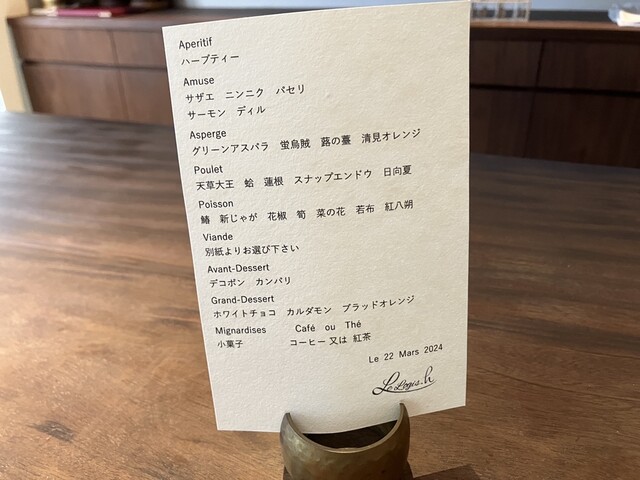 Aperitif
ハーブティー
Amuse
サザエ　ニンニク　パセリ
サーモン　ディル
Asperge
グリーンアスパラ　蛍烏賊　蕗の薹　清見オレンジ
Poulet
天草大王　蛤　蓮根　スナップエンドウ　日向夏
Poisson
鰆　新じゃが　花椒　筍　菜の花　若布　紅八朔
Viande
別紙よりお選び下さい
Avant-Dessert
デコポン　カンパリ
Grand-Dessert
ホワイトチョコ　カルダモン　ブラッドオレンジ
Mignardises　Café ou Thé
小菓子　コーヒー 又は 紅茶
Le 22 Mars 2024
Le Logis.h